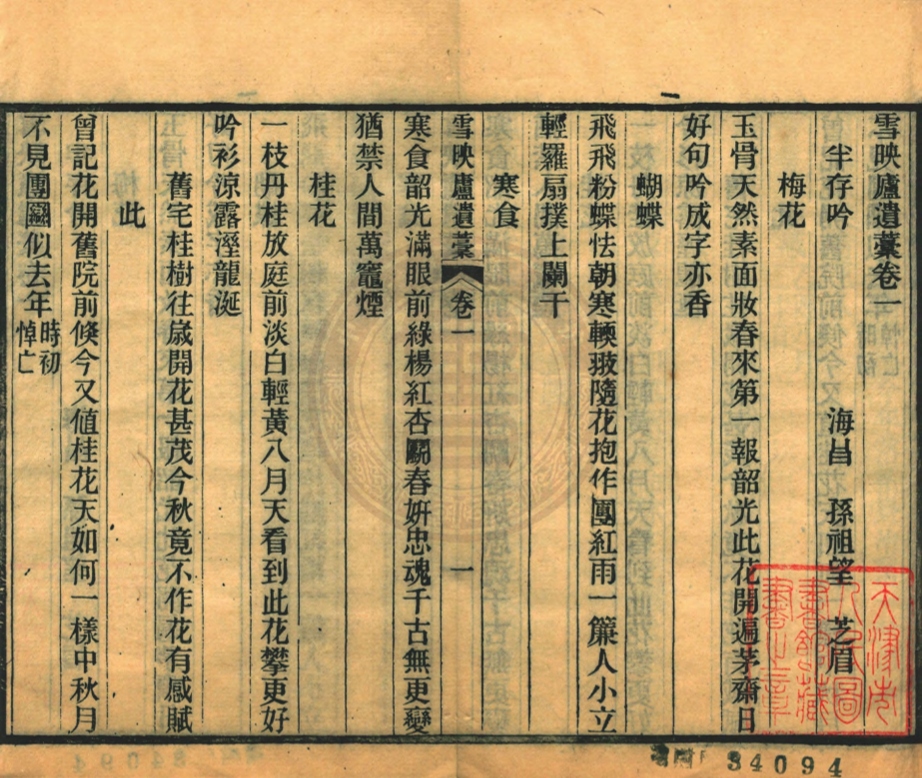 雪映廬遺藳卷一
半存吟 海昌 孫祖望 芝眉
梅花
玉骨天然素面妝春來第一報韶光此花開遍茅齋日
好句吟成字亦香
蝴蝶
飛飛粉蝶怯朝寒輭翅隨花抱作團紅雨一簾人小立
輕羅扇撲上闌干
寒食
雪映廬遺藳 卷一 一
寒食韶光滿眼前綠楊紅杏鬭春妍忠魂千古無更變
猶禁人間萬竈煙
桂花
一枝丹桂放庭前淡白輕黃八月天看到此花攀更好
吟衫涼露溼龍涎
舊宅桂樹往歲開花甚茂今秋竟不作花有感賦
此
曾記花開舊院前倏今又值桂花天如何一樣中秋月
不見團圞似去年 時初悼亡
天津市
人民圖
書館藏
書之章
34094